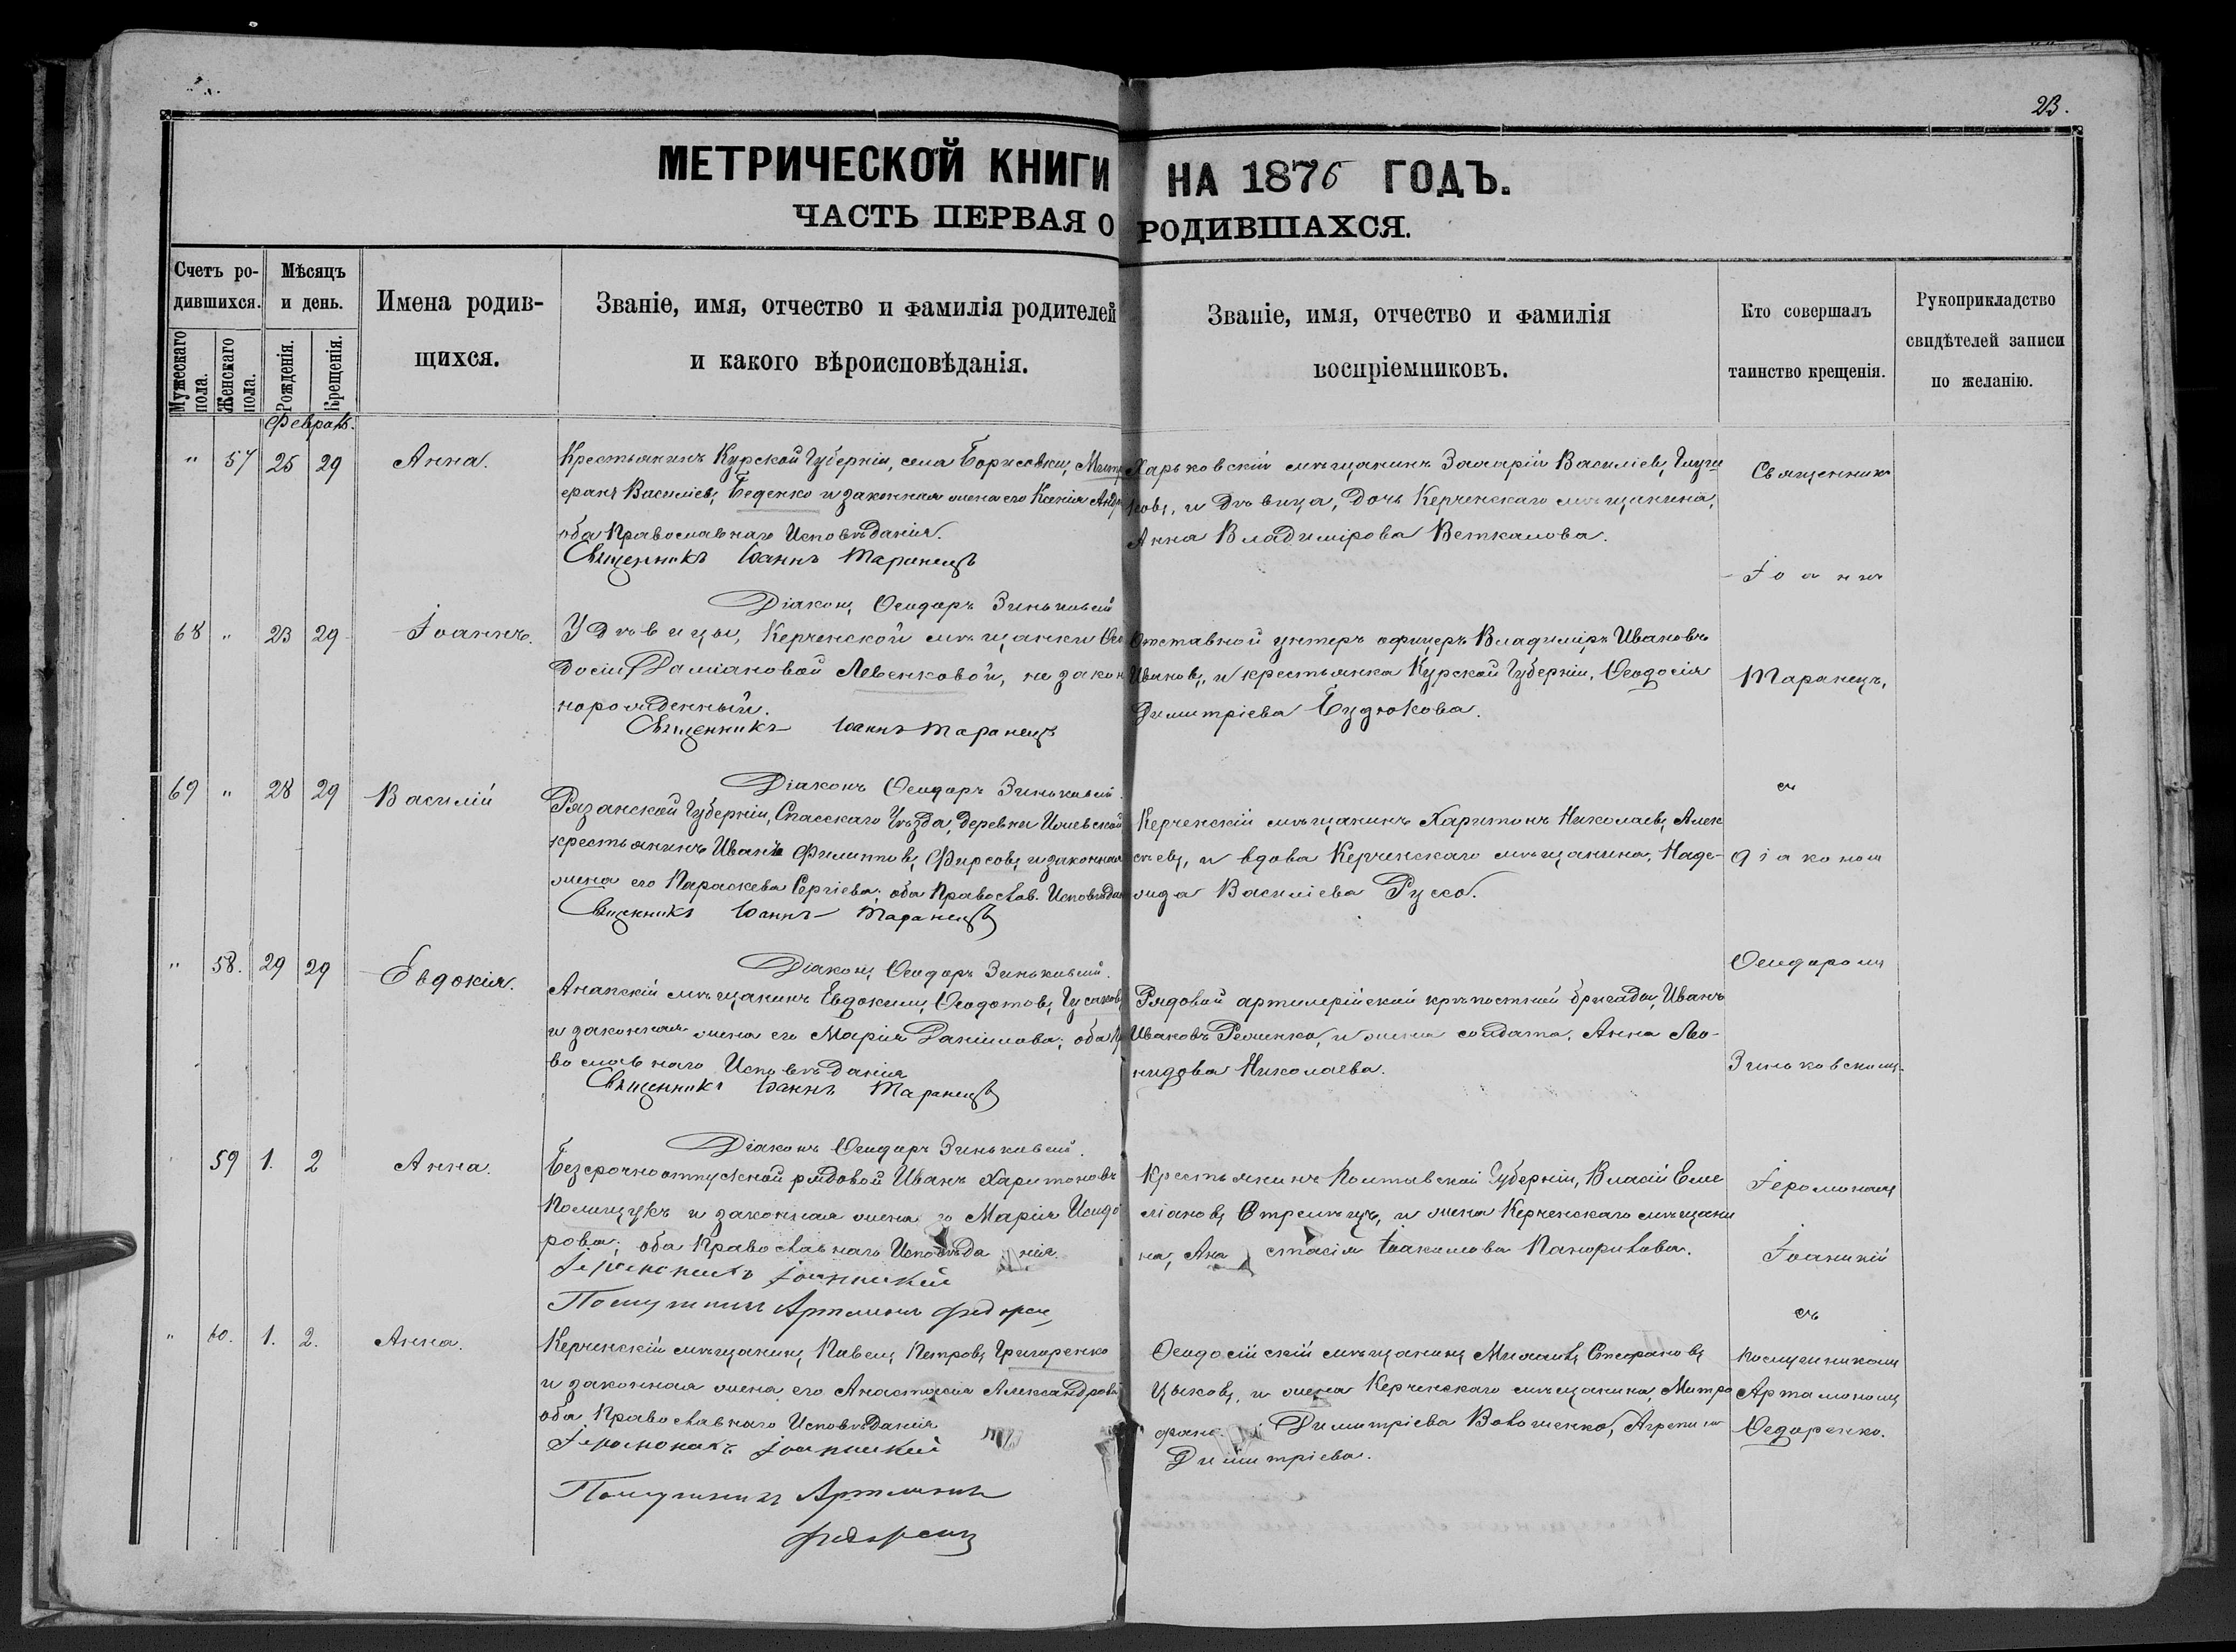 23.
МЕТРИЧЕСКОЙ КНИГИ НА 1876 ГОДЪ.
ЧАСТЬ ПЕРВАЯ О РОДИВШАХСЯ.
Счетъ ро-
дившихся.
Мужескаго пола.
Женскаго пола.
Мѣсяцъ
и день.
Рожденія.
Крещенія.
Имена родив-
щихся.
Званіе, имя, отчество и фамилія родителей
и какого вѣроисповѣданія.
Званіе, имя, отчество и фамилія
воспріемниковъ.
Кто совершалъ
таинство крещенія.
Рукоприкладство
свидѣтелей записи
по желанію.
Февраль.
" 57 25 29 Анна.
Крестьянинъ Курской Губерніи, села Борисовки, Митр
фанъ Василіевъ Беденко и законная жена его Ксенія Андр
оба Православнаго Исповѣданія.
Священникъ Іоаннъ Таранецъ
Діаконъ Ѳеодоръ Зиньковскій
Харьковскій мѣщанинъ Захарій Василіевъ
ковъ, и дѣвица, дочь Керченскаго мѣщанина,
Анна Владимірова Веткалова.
Священникъ
Іоаннъ
68 " 23 29 Іоаннъ.
У дѣвицы, Керченской мѣщанки Ѳео
досіи Даміановой Левенковой, незакон
норожденный.
Священникъ Іоаннъ Таранецъ
Діаконъ Ѳеодоръ Зиньковскій
Отставной унтеръ офицеръ Владиміръ Ивановъ
Ивановъ, и крестьянка Курской Губерніи, Ѳеодосія
Димитріева Будюкова.
Таранецъ,
69 " 28 29 Василій
Рязанской Губерніи, Спасскаго Уѣзда, деревни
крестьянинъ Иванъ Филипповъ Фирсовъ и законная
жена его Параскева Сергіева; оба Православ. Исповѣдан
Священникъ Іоаннъ Таранецъ
Діаконъ Ѳеодоръ Зиньковскій.
Керченскій мѣщанинъ Харитонъ Николаевъ Алек
сѣевъ, и вдова Керченскаго мѣщанина, Наде-
жда Василіева Руссо.
съ
діакономъ
" 58. 29 29 Евдокія.
Анапскій мѣщанинъ Евдокимъ Ѳеодотовъ Гусаковъ
и законная жена его Марія Даніилова; оба Пра
вославнаго Исповѣданія
Священникъ Іоаннъ Таранецъ
Діаконъ Ѳеодоръ Зиньковскій.
Рядовой артиллерійской крѣпостной бригады, Иванъ
Ивановъ и жена солдата, Анна Лео-
нидова Николаева.
Ѳеодоромъ
Зиньковскимъ.
59 1. 2 Анна.
Безсрочноотпускной рядовой Иванъ Харитоновъ
Полищукъ и законная жена его Марія Исидо
рова; оба Православнаго Исповѣданія
Іеромонахъ Іоанникій
Послушникъ Артамонъ Федорен
Крестьянинъ Полтавской Губерніи, Власій Еме
ліановъ Стрелецъ, и жена Керченскаго мѣщани
на, Анастасія Іоакимова
Іеромонахъ
Іоаникій
съ
" 60. 1. 2. Анна.
Керченскій мѣщанинъ Павелъ Петровъ Григоренко
и законная жена его Анастасія Александрова
оба Православнаго Исповѣданія
Іеромонахъ Іоанникій
Послушникъ Артамонъ
Федорен
Ѳеодосійскій мѣщанинъ Михаилъ Стефановъ
Цыковъ, и жена Керченскаго мѣщанина, Митро
фана Димитріева Воложенко, Агрепина
Димитріева.
послушникомъ
Артамономъ
Ѳедоренко.